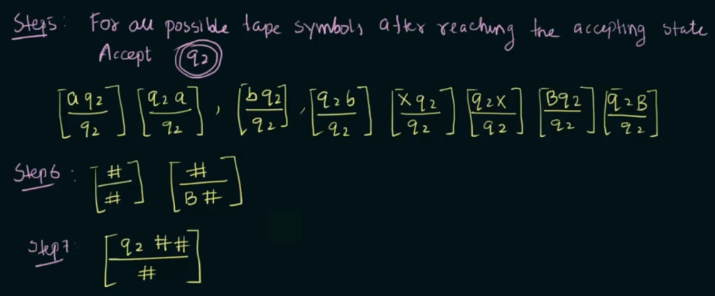 Step5: For all possible tape symbols after reaching the accepting state
Accept q2
[a q2 / q2] [q2 a / q2] , [b q2 / q2] , [q2 b / q2] [X q2 / q2] [q2 X / q2] [B q2 / q2] [q2 B / q2]
Step6: [# / #] [# / B #]
Step7: [q2 ## / #]